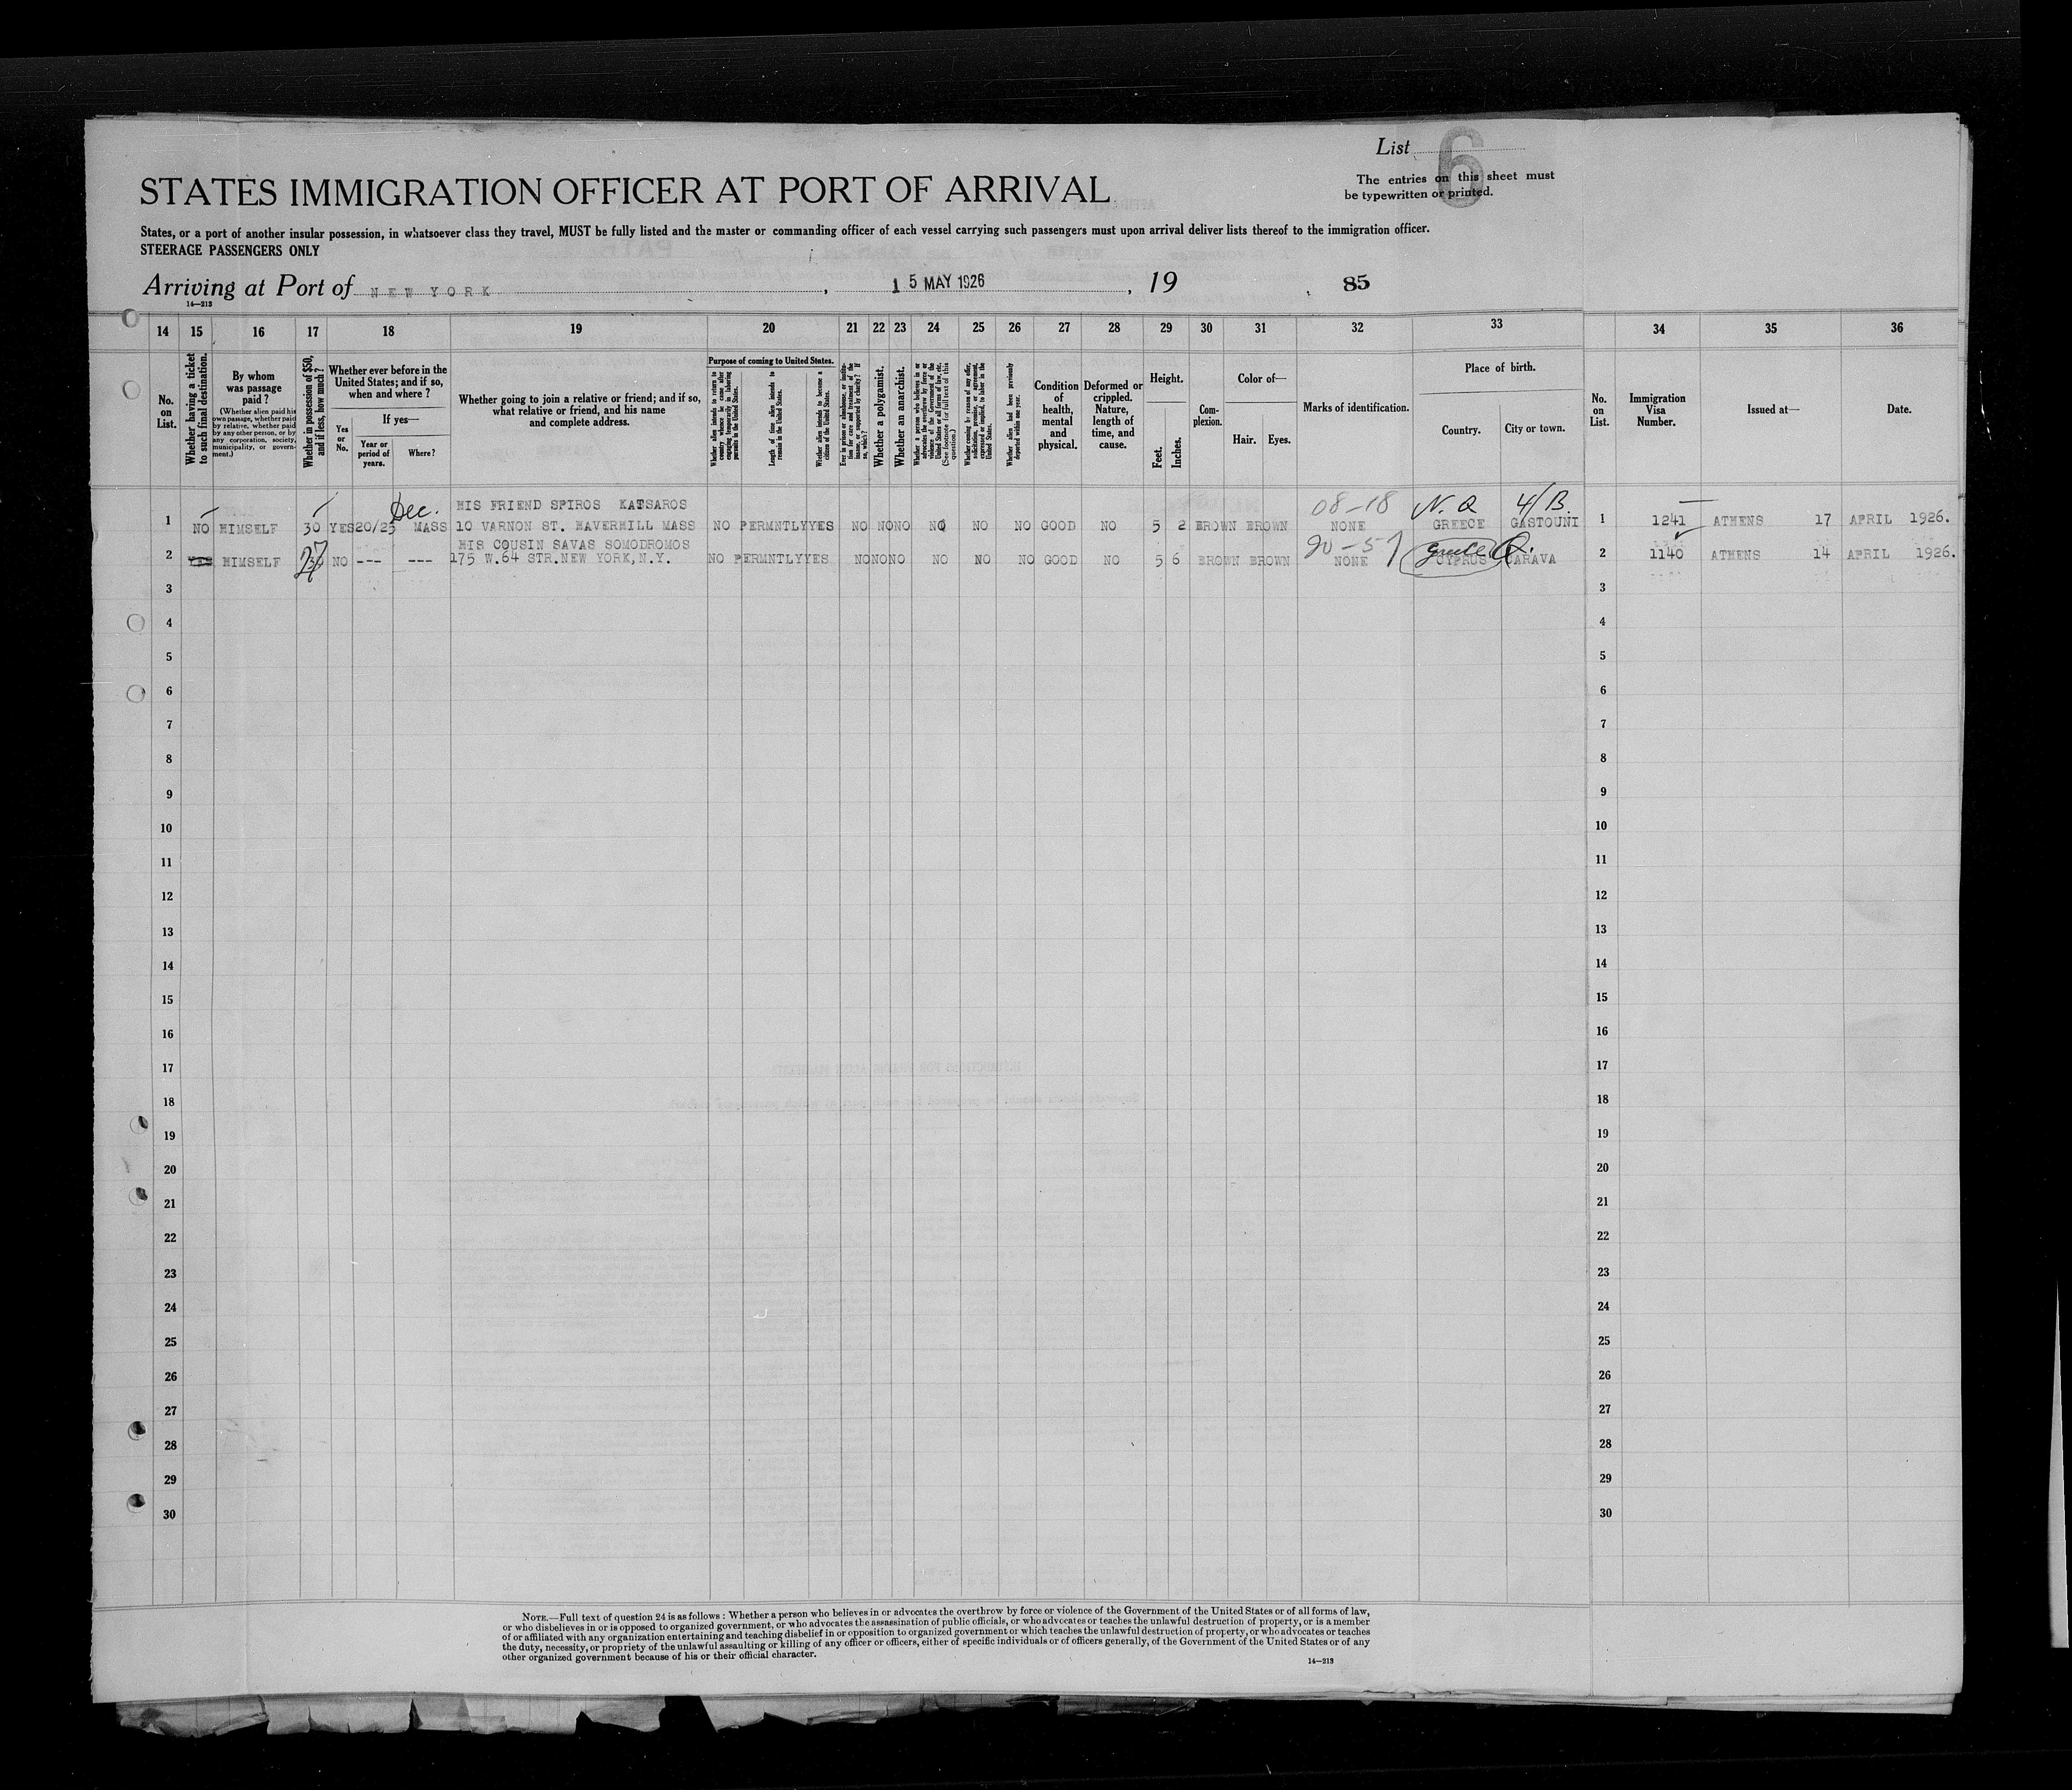 List 6
The entries on this sheet must
be typewritten or printed.
STATES IMMIGRATION OFFICER AT PORT OF ARRIVAL
States, or a port of another insular possession, in whatsoever class they travel, MUST be fully listed and the master or commanding officer of each vessel carrying such passengers must upon arrival deliver lists thereof to the immigration officer.
STEERAGE PASSENGERS ONLY
Arriving at Port of NEW YORK, 15 MAY 1926, 19 85
14—213
14 15 16 17 18 19 20 21 22 23 24 25 26 27 28 29 30 31 32 33 34 35 36
No. on List.
Whether having a ticket to such final destination.
By whom was passage paid?
(Whether alien paid his own passage, whether paid by relative, whether paid by any other person, or by any corporation, society, municipality, or government.)
Whether in possession of $50, and if less, how much?
Whether ever before in the United States; and if so, when and where?
Yes or No.
If yes—
Year or period of years.
Where?
Whether going to join a relative or friend; and if so, what relative or friend, and his name and complete address.
Purpose of coming to United States.
Whether alien intends to return to country whence he came after engaging temporarily in laboring pursuits in the United States.
Length of time alien intends to remain in the United States.
Whether alien intends to become a citizen of the United States.
Ever in prison or almshouse, or institution for care and treatment of the insane, or supported by charity? If so, which?
Whether a polygamist.
Whether an anarchist.
Whether a person who believes in or advocates the overthrow by force or violence of the Government of the United States or all forms of law, etc. (See footnote for full text of this question.)
Whether coming by reason of any offer, solicitation, promise, or agreement, expressed or implied, to labor in the United States.
Whether alien had been previously deported within one year.
Condition of health, mental and physical.
Deformed or crippled. Nature, length of time, and cause.
Height.
Feet.
Inches.
Complexion.
Color of—
Hair.
Eyes.
Marks of identification.
Place of birth.
Country.
City or town.
No. on List.
Immigration Visa Number.
Issued at—
Date.
Dec. HIS FRIEND SPIROS KATSAROS 08-18 N.Q 4/B.
1 NO HIMSELF 30 YES 20/25 MASS 10 VARNON ST. HAVERHILL MASS NO PERMNTLY YES NO NO NO NO NO NO GOOD NO 5 2 BROWN BROWN NONE GREECE GASTOUNI 1 1241 ATHENS 17 APRIL 1926.
HIS COUSIN SAVAS SOMODROMOS 20-57 Q.
2 YES HIMSELF NO --- --- 175 W.64 STR.NEW YORK,N.Y. NO PERMNTLY YES NO NO NO NO NO NO GOOD NO 5 6 BROWN BROWN NONE CYPRUS CARAVA 2 1140 ATHENS 14 APRIL 1926.
3 3
4 4
5 5
6 6
7 7
8 8
9 9
10 10
11 11
12 12
13 13
14 14
15 15
16 16
17 17
18 18
19 19
20 20
21 21
22 22
23 23
24 24
25 25
26 26
27 27
28 28
29 29
30 30
NOTE.—Full text of question 24 is as follows: Whether a person who believes in or advocates the overthrow by force or violence of the Government of the United States or of all forms of law,
or who disbelieves in or is opposed to organized government, or who advocates the assassination of public officials, or who advocates or teaches the unlawful destruction of property, or is a member
of or affiliated with any organization entertaining and teaching disbelief in or opposition to organized government or which teaches the unlawful destruction of property, or who advocates or teaches
the duty, necessity, or propriety of the unlawful assaulting or killing of any officer or officers, either of specific individuals or of officers generally, of the Government of the United States or of any
other organized government because of his or their official character.
14—213